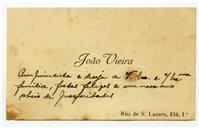 João Vieira
Cumprimenta e deseja a V. Exa. e Exma
familia, festas felizes e um novo ano
cheio de prosperidades
Rúa de S. Lazaro, 134, 1.º